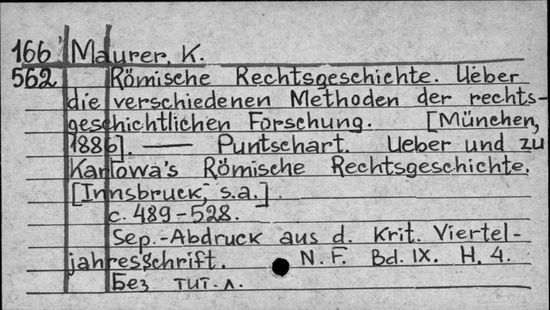 166 Maurer, K.
562 Römische Rechtsgeschichte. Ueber
die verschiedenen Methoden der rechts-
geschichtlichen Forschung. [München,
1886]. — Puntschart. Ueber und zu
Karlowa's Römische Rechtsgeschichte.
[Innsbruck, s.a.]
c. 489-528.
Sep.-Abdruck aus d. Krit. Viertel-
jahresschrift. N. F. Bd. IX. H. 4.
Без тит. л.